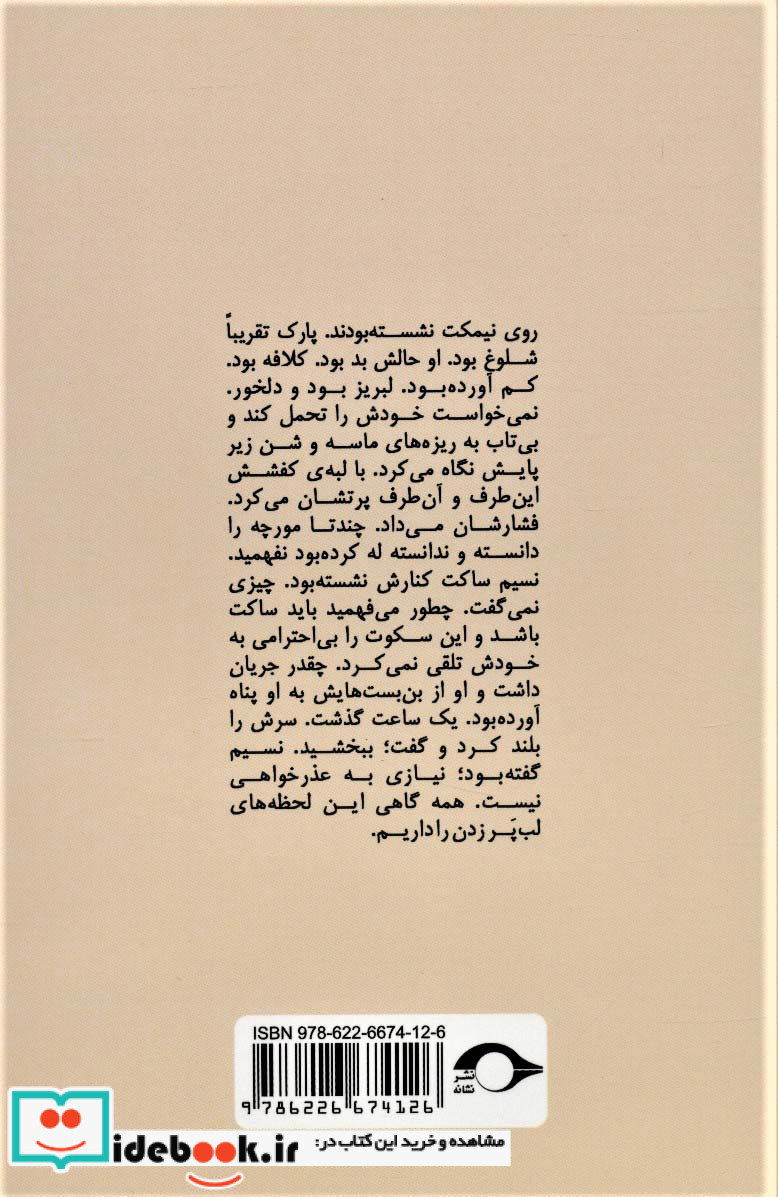 روی نیمکت نشسته‌بودند. پارک تقریباً
شلوغ بود. او حالش بد بود. کلافه بود.
کم آورده‌بود. لبریز بود و دلخور.
نمی‌خواست خودش را تحمل کند و
بی‌تاب به ریزه‌های ماسه و شن زیر
پایش نگاه می‌کرد. با لبه‌ی کفشش
این‌طرف و آن‌طرف پرتشان می‌کرد.
فشارشان می‌داد. چندتا مورچه را
دانسته و ندانسته له کرده‌بود نفهمید.
نسیم ساکت کنارش نشسته‌بود. چیزی
نمی‌گفت. چطور می‌فهمید باید ساکت
باشد و این سکوت را بی‌احترامی به
خودش تلقی نمی‌کرد. چقدر جریان
داشت و او از بن‌بست‌هایش به او پناه
آورده‌بود. یک ساعت گذشت. سرش را
بلند کرد و گفت؛ ببخشید. نسیم
گفته‌بود؛ نیازی به عذرخواهی
نیست. همه گاهی این لحظه‌های
لب‌پَر زدن را داریم.
ISBN 978-622-6674-12-6
9 786226 674126
نشر
نشانه
مشاهده و خرید این کتاب در:
idebook.ir